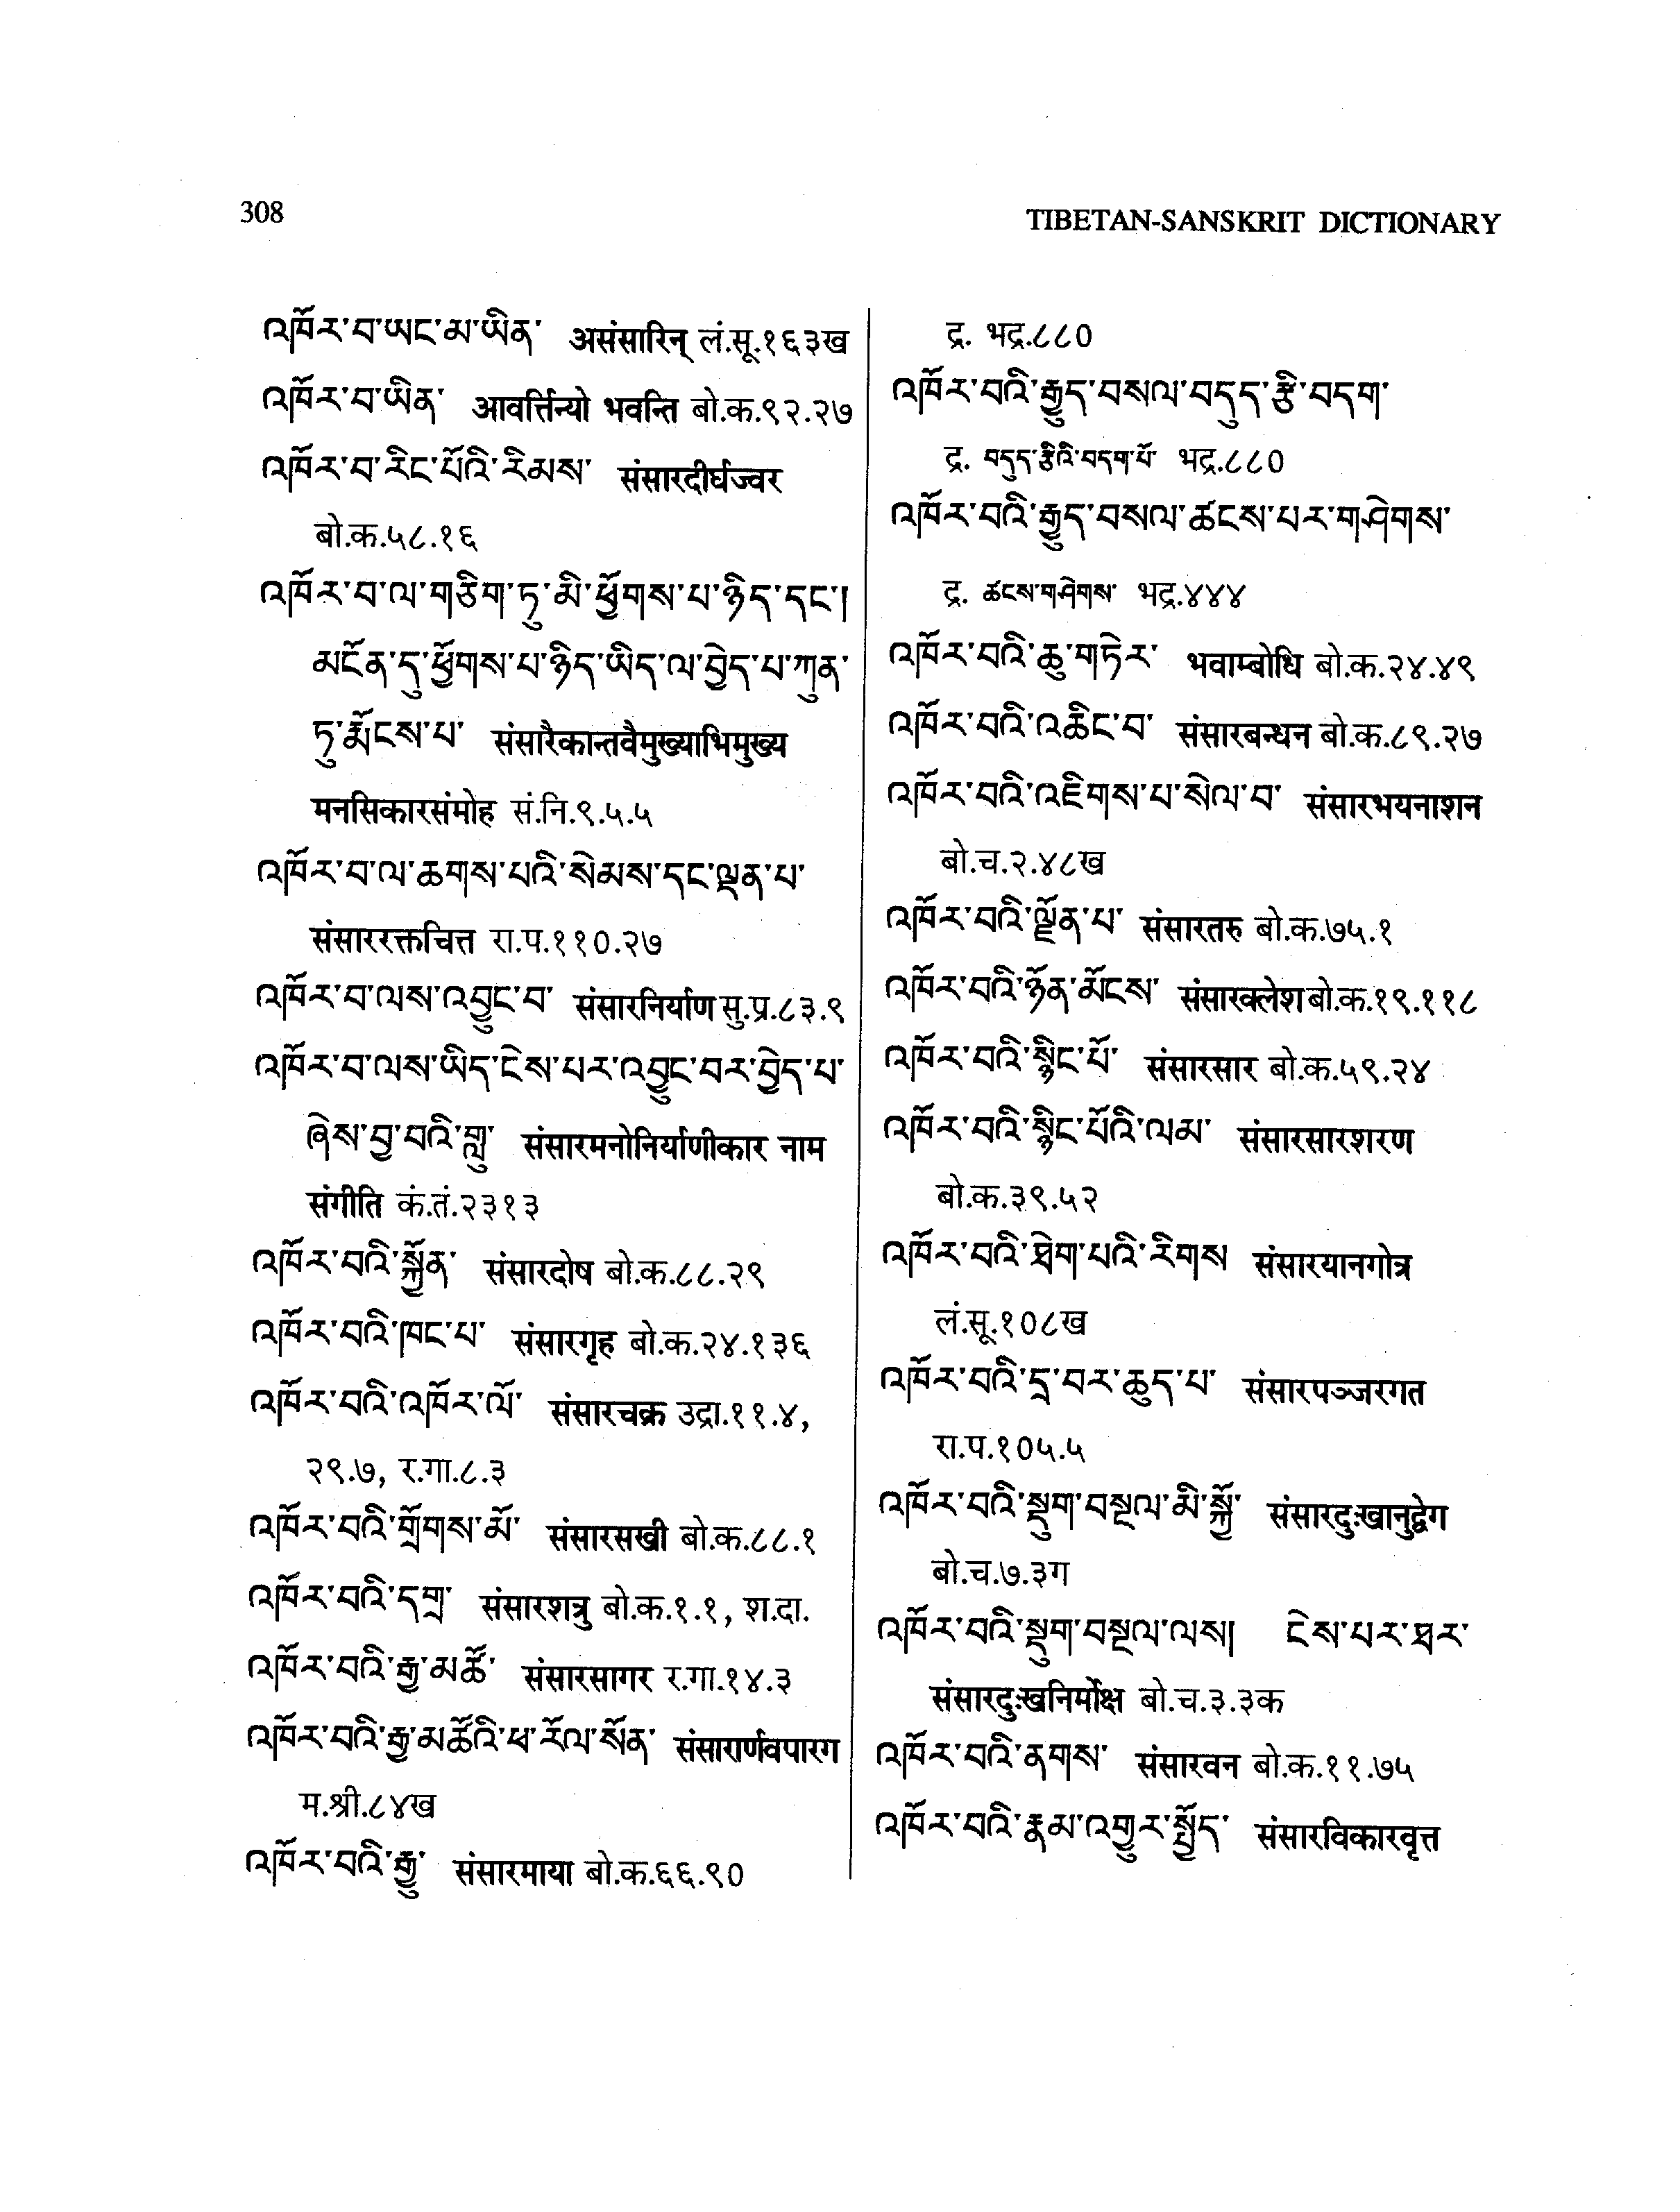 308
TIBETAN-SANSKRIT DICTIONARY
འཁོར་བ་ཡང་མ་ཡིན་ असंसारिन् लं.सू.१६३ख
འཁོར་བ་ཡིན་ आवर्त्तिन्यो भवन्ति बो.क.९२.२७
འཁོར་བ་རིང་པོའི་རིམས་ संसारदीर्घज्वर
बो.क.५८.१६
འཁོར་བ་ལ་གཅིག་ཏུ་མི་ཕྱོགས་པ་ཉིད་དང་།
མངོན་དུ་ཕྱོགས་པ་ཉིད་ཡིད་ལ་བྱེད་པ་ཀུན་
ཏུ་རྨོངས་པ་ संसारैकान्तवैमुख्याभिमुख्य
मनसिकारसंमोह सं.नि.९.५.५
འཁོར་བ་ལ་ཆགས་པའི་སེམས་དང་ལྡན་པ་
संसाररक्तचित्त रा.प.११०.२७
འཁོར་བ་ལས་འབྱུང་བ་ संसारनिर्याण सु.प्र.८३.९
འཁོར་བ་ལས་ཡིད་ངེས་པར་འབྱུང་བར་བྱེད་པ་
ཞེས་བྱ་བའི་གླུ་ संसारमनोनिर्याणीकार नाम
संगीति कं.तं.२३१३
འཁོར་བའི་སྐྱོན་ संसारदोष बो.क.८८.२९
འཁོར་བའི་ཁང་པ་ संसारगृह बो.क.२४.१३६
འཁོར་བའི་འཁོར་ལོ་ संसारचक्र उद्रा.११.४,
२९.७, र.गा.८.३
འཁོར་བའི་གྲོགས་མོ་ संसारसखी बो.क.८८.१
འཁོར་བའི་དགྲ་ संसारशत्रु बो.क.१.१, श.दा.
འཁོར་བའི་རྒྱ་མཚོ་ संसारसागर र.गा.१४.३
འཁོར་བའི་རྒྱ་མཚོའི་ཕ་རོལ་སོན་ संसारार्णवपारग
म.श्री.८४ख
འཁོར་བའི་རྒྱུ་ संसारमाया बो.क.६६.९०
द्र. भद्र.८८०
འཁོར་བའི་རྒྱུད་བསལ་བདུད་རྩི་བདག་
द्र. བདུད་རྩིའི་བདག་པོ་ भद्र.८८०
འཁོར་བའི་རྒྱུད་བསལ་ཚངས་པར་གཤེགས་
द्र. ཚངས་གཤེགས་ भद्र.४४४
འཁོར་བའི་ཆུ་གཏེར་ भवाम्बोधि बो.क.२४.४९
འཁོར་བའི་འཆིང་བ་ संसारबन्धन बो.क.८९.२७
འཁོར་བའི་འཇིགས་པ་སེལ་བ་ संसारभयनाशन
बो.च.२.४८ख
འཁོར་བའི་ལྗོན་པ་ संसारतरु बो.क.७५.१
འཁོར་བའི་ཉོན་མོངས་ संसारक्लेश बो.क.१९.११८
འཁོར་བའི་སྙིང་པོ་ संसारसार बो.क.५९.२४
འཁོར་བའི་སྙིང་པོའི་ལམ་ संसारसारशरण
बो.क.३९.५२
འཁོར་བའི་ཐེག་པའི་རིགས संसारयानगोत्र
लं.सू.१०८ख
འཁོར་བའི་དྲ་བར་ཆུད་པ་ संसारपञ्जरगत
रा.प.१०५.५
འཁོར་བའི་སྡུག་བསྔལ་མི་སྐྱོ་ संसारदुःखानुद्वेग
बो.च.७.३ग
འཁོར་བའི་སྡུག་བསྔལ་ལས། ངེས་པར་ཐར་
संसारदुःखनिर्मोक्ष बो.च.३.३क
འཁོར་བའི་ནགས་ संसारवन बो.क.११.७५
འཁོར་བའི་རྣམ་འགྱུར་སྤྱོད་ संसारविकारवृत्त